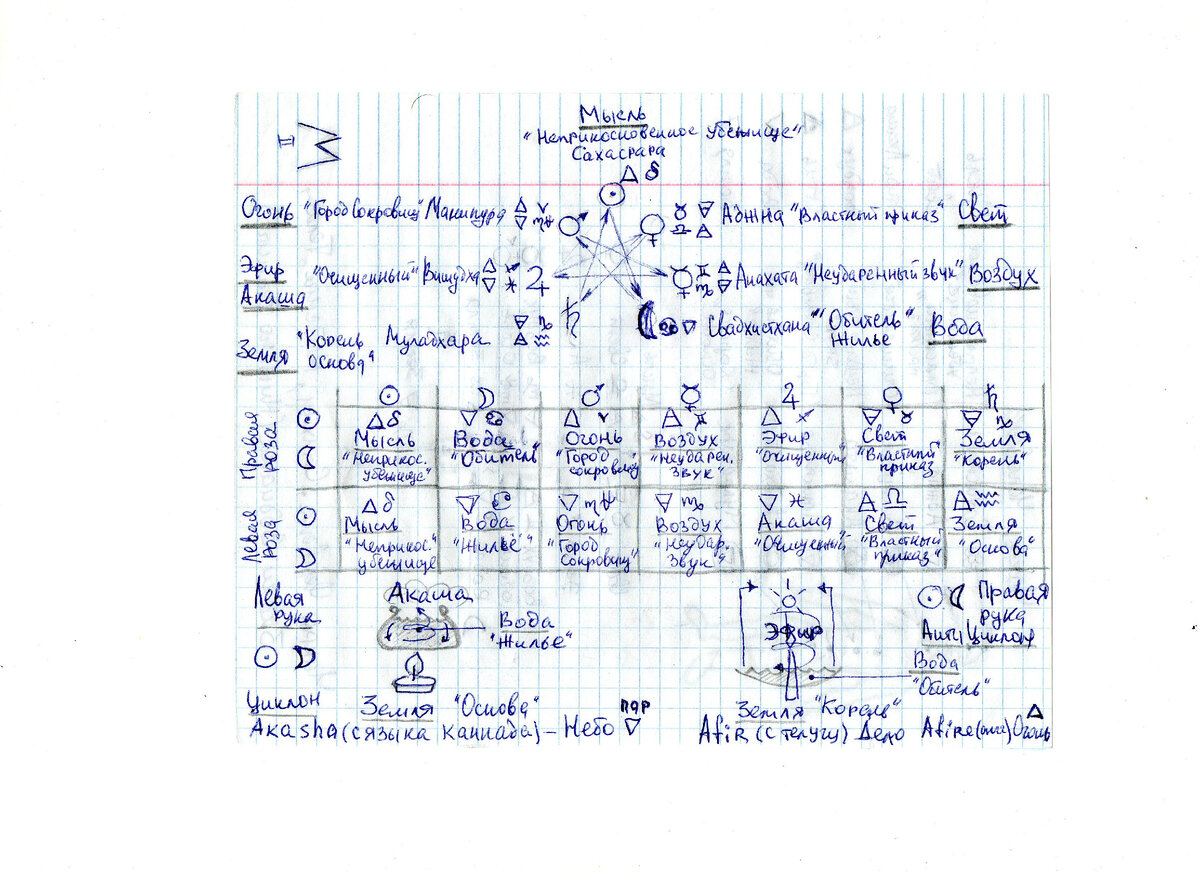 II
Мысль
"Неприкосновенное убежище"
Сахасрара
Огонь "Город сокровищ" Манипура
Аджна "Властный приказ" Свет
Эфир "Очищенный" Вишудха
Акаша
Анахата "Неударенный звук" Воздух
Земля "Корень основа" Муладхара
Свадхистхана "Обитель" Жилье Вода
Правая роза
Мысль Вода Огонь Воздух Эфир Свет Земля
"Неприкос. убежище" "Обитель" "Город сокровищ" "Неударен. звук" "Очищенный" "Властный приказ" "Корень"
Левая роза
Мысль Вода Огонь Воздух Акаша Свет Земля
"Неприкос." убежище "Жильё" "Город сокровищ" "Неудар. звук" "Очищенный" "Властный приказ" "Основа"
Левая рука
Акаша
Вода
"Жилье"
Циклон
Земля "Основа"
Эфир
Правая рука
Антициклон
Вода
"Обитель"
Земля "Корень"
Akasha (с языка каннада) – Небо
пар
Afir (с телугу) Дело
Afire (англ) Огонь